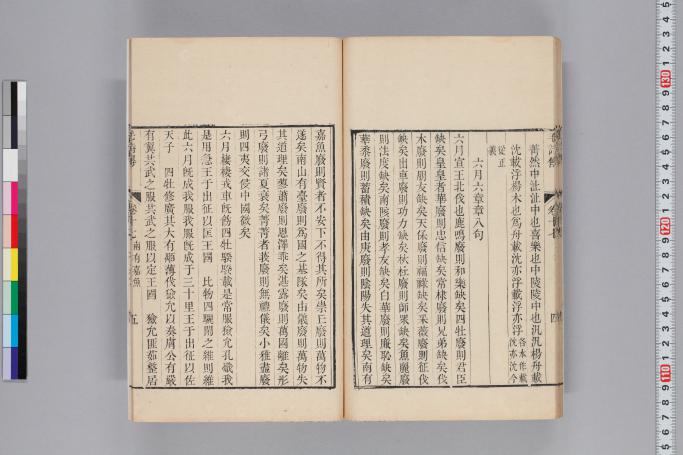 菁然中沚沚中也喜樂也中陵陵中也汎汎楊舟載
沈載浮楊木也爲舟載沈亦浮載浮亦浮各本作載沈亦沈今
從正義
六月六章章八句
六月宣王北伐也鹿鳴廢則和樂缺矣四牡廢則君臣
缺矣皇皇者華廢則忠信缺矣常棣廢則兄弟缺矣伐
木廢則朋友缺矣天保廢則福祿缺矣采薇廢則征伐
缺矣出車廢則功力缺矣杕杜廢則師衆缺矣魚麗廢
則法度缺矣南陔廢則孝友缺矣白華廢則廉恥缺矣
華黍廢則蓄積缺矣由庚廢則陰陽失其道理矣南有
嘉魚廢則賢者不安下不得其所矣崇丘廢則萬物不
遂矣南山有臺廢則爲國之基隊矣由儀廢則萬物失
其道理矣蓼蕭廢則恩澤乖矣湛露廢則萬國離矣彤
弓廢則諸夏衰矣菁菁者莪廢則無禮儀矣小雅盡廢
則四夷交侵中國微矣
六月棲棲戎車既飭四牡騤騤載是常服獫允孔熾我
是用急王于出征以匡王國 比物四驪閑之維則維
此六月既成我服我服既成于三十里王于出征以佐
天子 四牡修廣其大有顒薄伐獫允以奏膚公有嚴
有翼共武之服共武之服以定王國 獫允匪茹整居
南有嘉魚
五